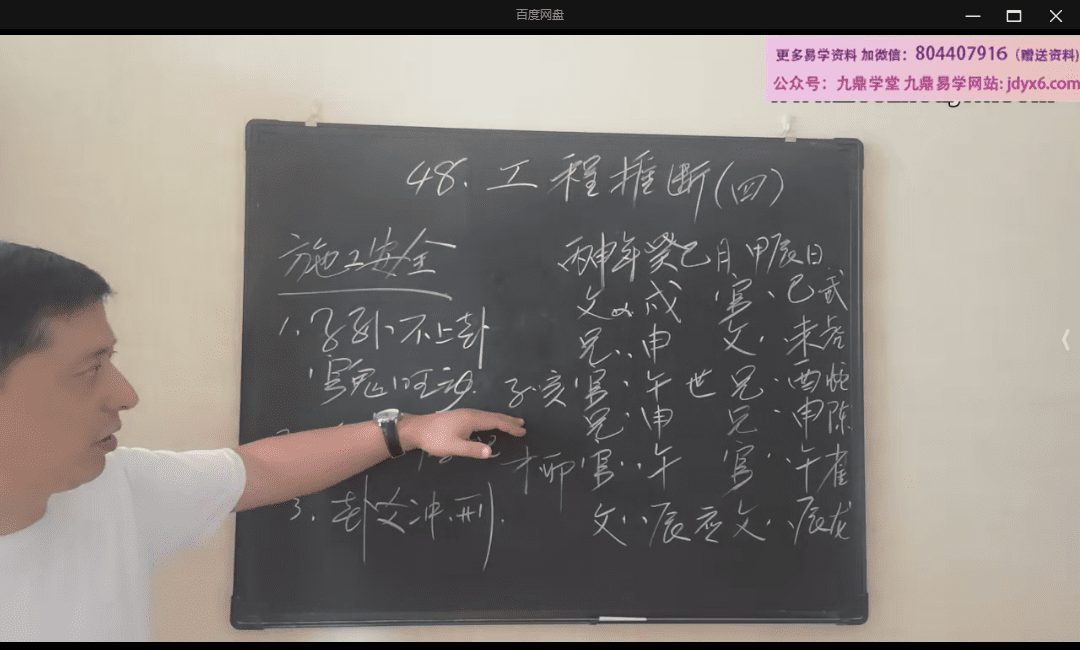 百度网盘
更多易学资料 加微信：804407916（赠送资料）
公众号：九鼎学堂 九鼎易学网站：jdyx6.com
48. 工程推断(四)
施工安全
1. 子孙不上卦
官鬼旺动.
3. 卦爻冲.刑.
丙申年癸巳月甲辰日
父 戌 官 巳武
兄 申 父 未
子亥官 午 世 兄 酉
兄 申 兄 申陈
才卯官 午 官 午雀
父 辰 应 父 辰龙